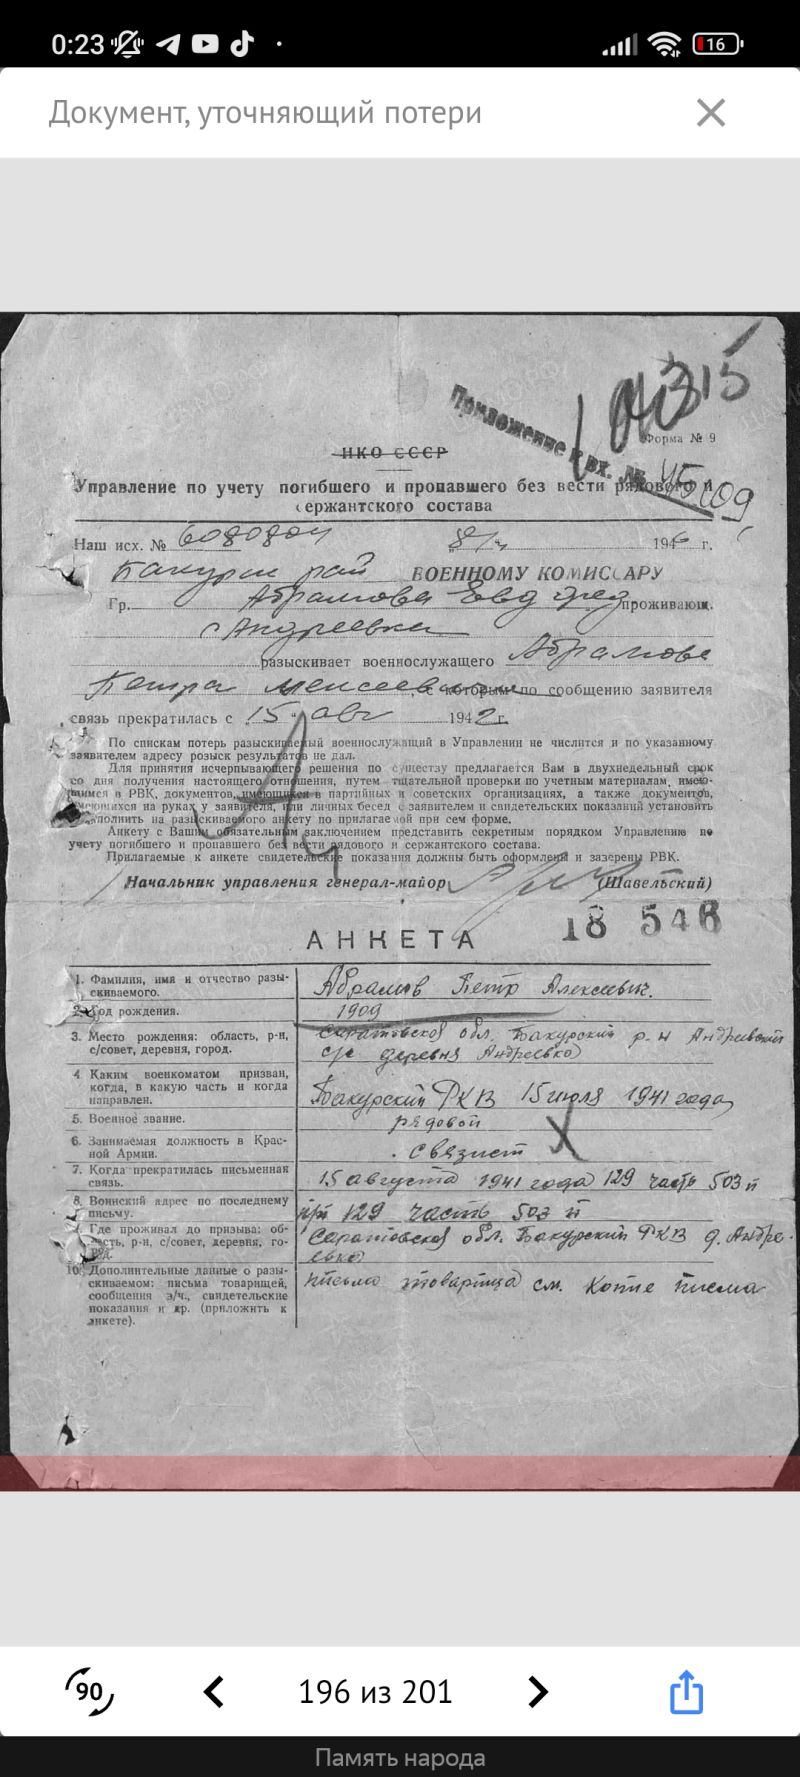 0:23
16
Документ, уточняющий потери
315
Приложение к вх. №
45109
Форма № 9
НКО СССР
Управление по учету погибшего и пропавшего без вести рядового и
сержантского состава
Наш исх. №
194 г.
рай ВОЕННОМУ КОМИССАРУ
Гр. Абрамова проживающ.
с Андреевка
разыскивает военнослужащего Абрамова
Петра с которым по сообщению заявителя
связь прекратилась с 15 авг 1942 г.
По спискам потерь разыскиваемый военнослужащий в Управлении не числится и по указанному
заявителем адресу розыск результатов не дал.
Для принятия исчерпывающего решения по существу предлагается Вам в двухнедельный срок
со дня получения настоящего отношения, путем тщательной проверки по учетным материалам, имею-
щимся в РВК, документов, имеющихся в партийных и советских организациях, а также документов,
имеющихся на руках у заявителя, или личных бесед с заявителем и свидетельских показаний установить
и заполнить на разыскиваемого анкету по прилагаемой при сем форме.
Анкету с Вашим обязательным заключением представить секретным порядком Управлению по
учету погибшего и пропавшего без вести рядового и сержантского состава.
Прилагаемые к анкете свидетельские показания должны быть оформлены и заверены РВК.
Начальник управления генерал-майор (Шавельский)
18 546
АНКЕТА
1. Фамилия, имя и отчество разы-
скиваемого.
Абрамов Петр Алексеевич.
2. Год рождения.
1909
3. Место рождения: область, р-н,
с/совет, деревня, город.
Саратовской обл. Бакурский р-н Андреевский
с/с деревня Андреевко
4 Каким военкоматом призван,
когда, в какую часть и когда
направлен.
Бакурский РКВ 15 июля 1941 года
5. Военное звание.
рядовой
6. Занимаемая должность в Крас-
ной Армии.
связист
7. Когда прекратилась письменная
связь.
15 августа 1941 года 129 часть 503 п
8. Воинский адрес по последнему
письму.
129 часть 503 п
9. Где проживал до призыва: об-
ласть, р-н, с/совет, деревня, го-
род.
Саратовской обл. Бакурский РКВ д. Андре-
евко
10. Дополнительные данные о разы-
скиваемом: письма товарищей,
сообщения э/ч., свидетельские
показания и др. (приложить к
анкете).
письмо товарища см. копие писма
90
196 из 201
Память народа